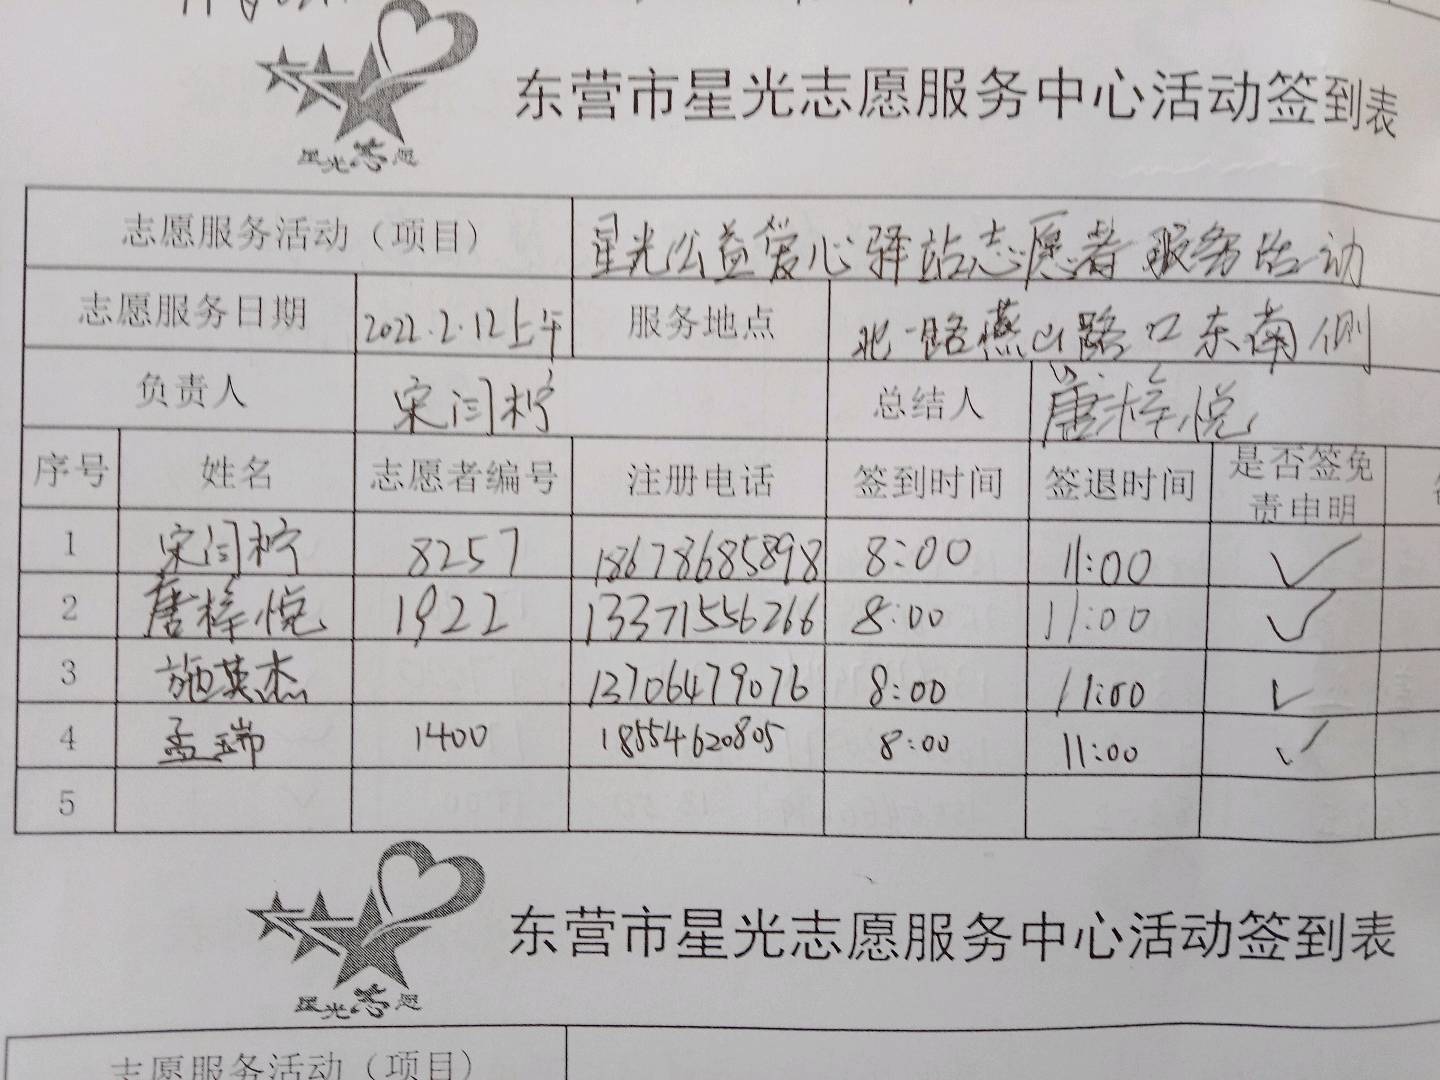 星光志愿
东营市星光志愿服务中心活动签到表
志愿服务活动（项目） 星光公益爱心驿站志愿者服务活动
志愿服务日期 2022.2.12上午 服务地点 北一路燕山路口东南侧
负责人 宋闫柠 总结人 唐梓悦
序号 姓名 志愿者编号 注册电话 签到时间 签退时间 是否签免责申明
1 宋闫柠 8257 18678685898 8:00 11:00 ✓
2 唐梓悦 1922 13371556266 8:00 11:00 ✓
3 施英杰 13706479076 8:00 11:00 ✓
4 孟瑞 1400 18554620805 8:00 11:00 ✓
5
星光志愿
东营市星光志愿服务中心活动签到表
志愿服务活动（项目）